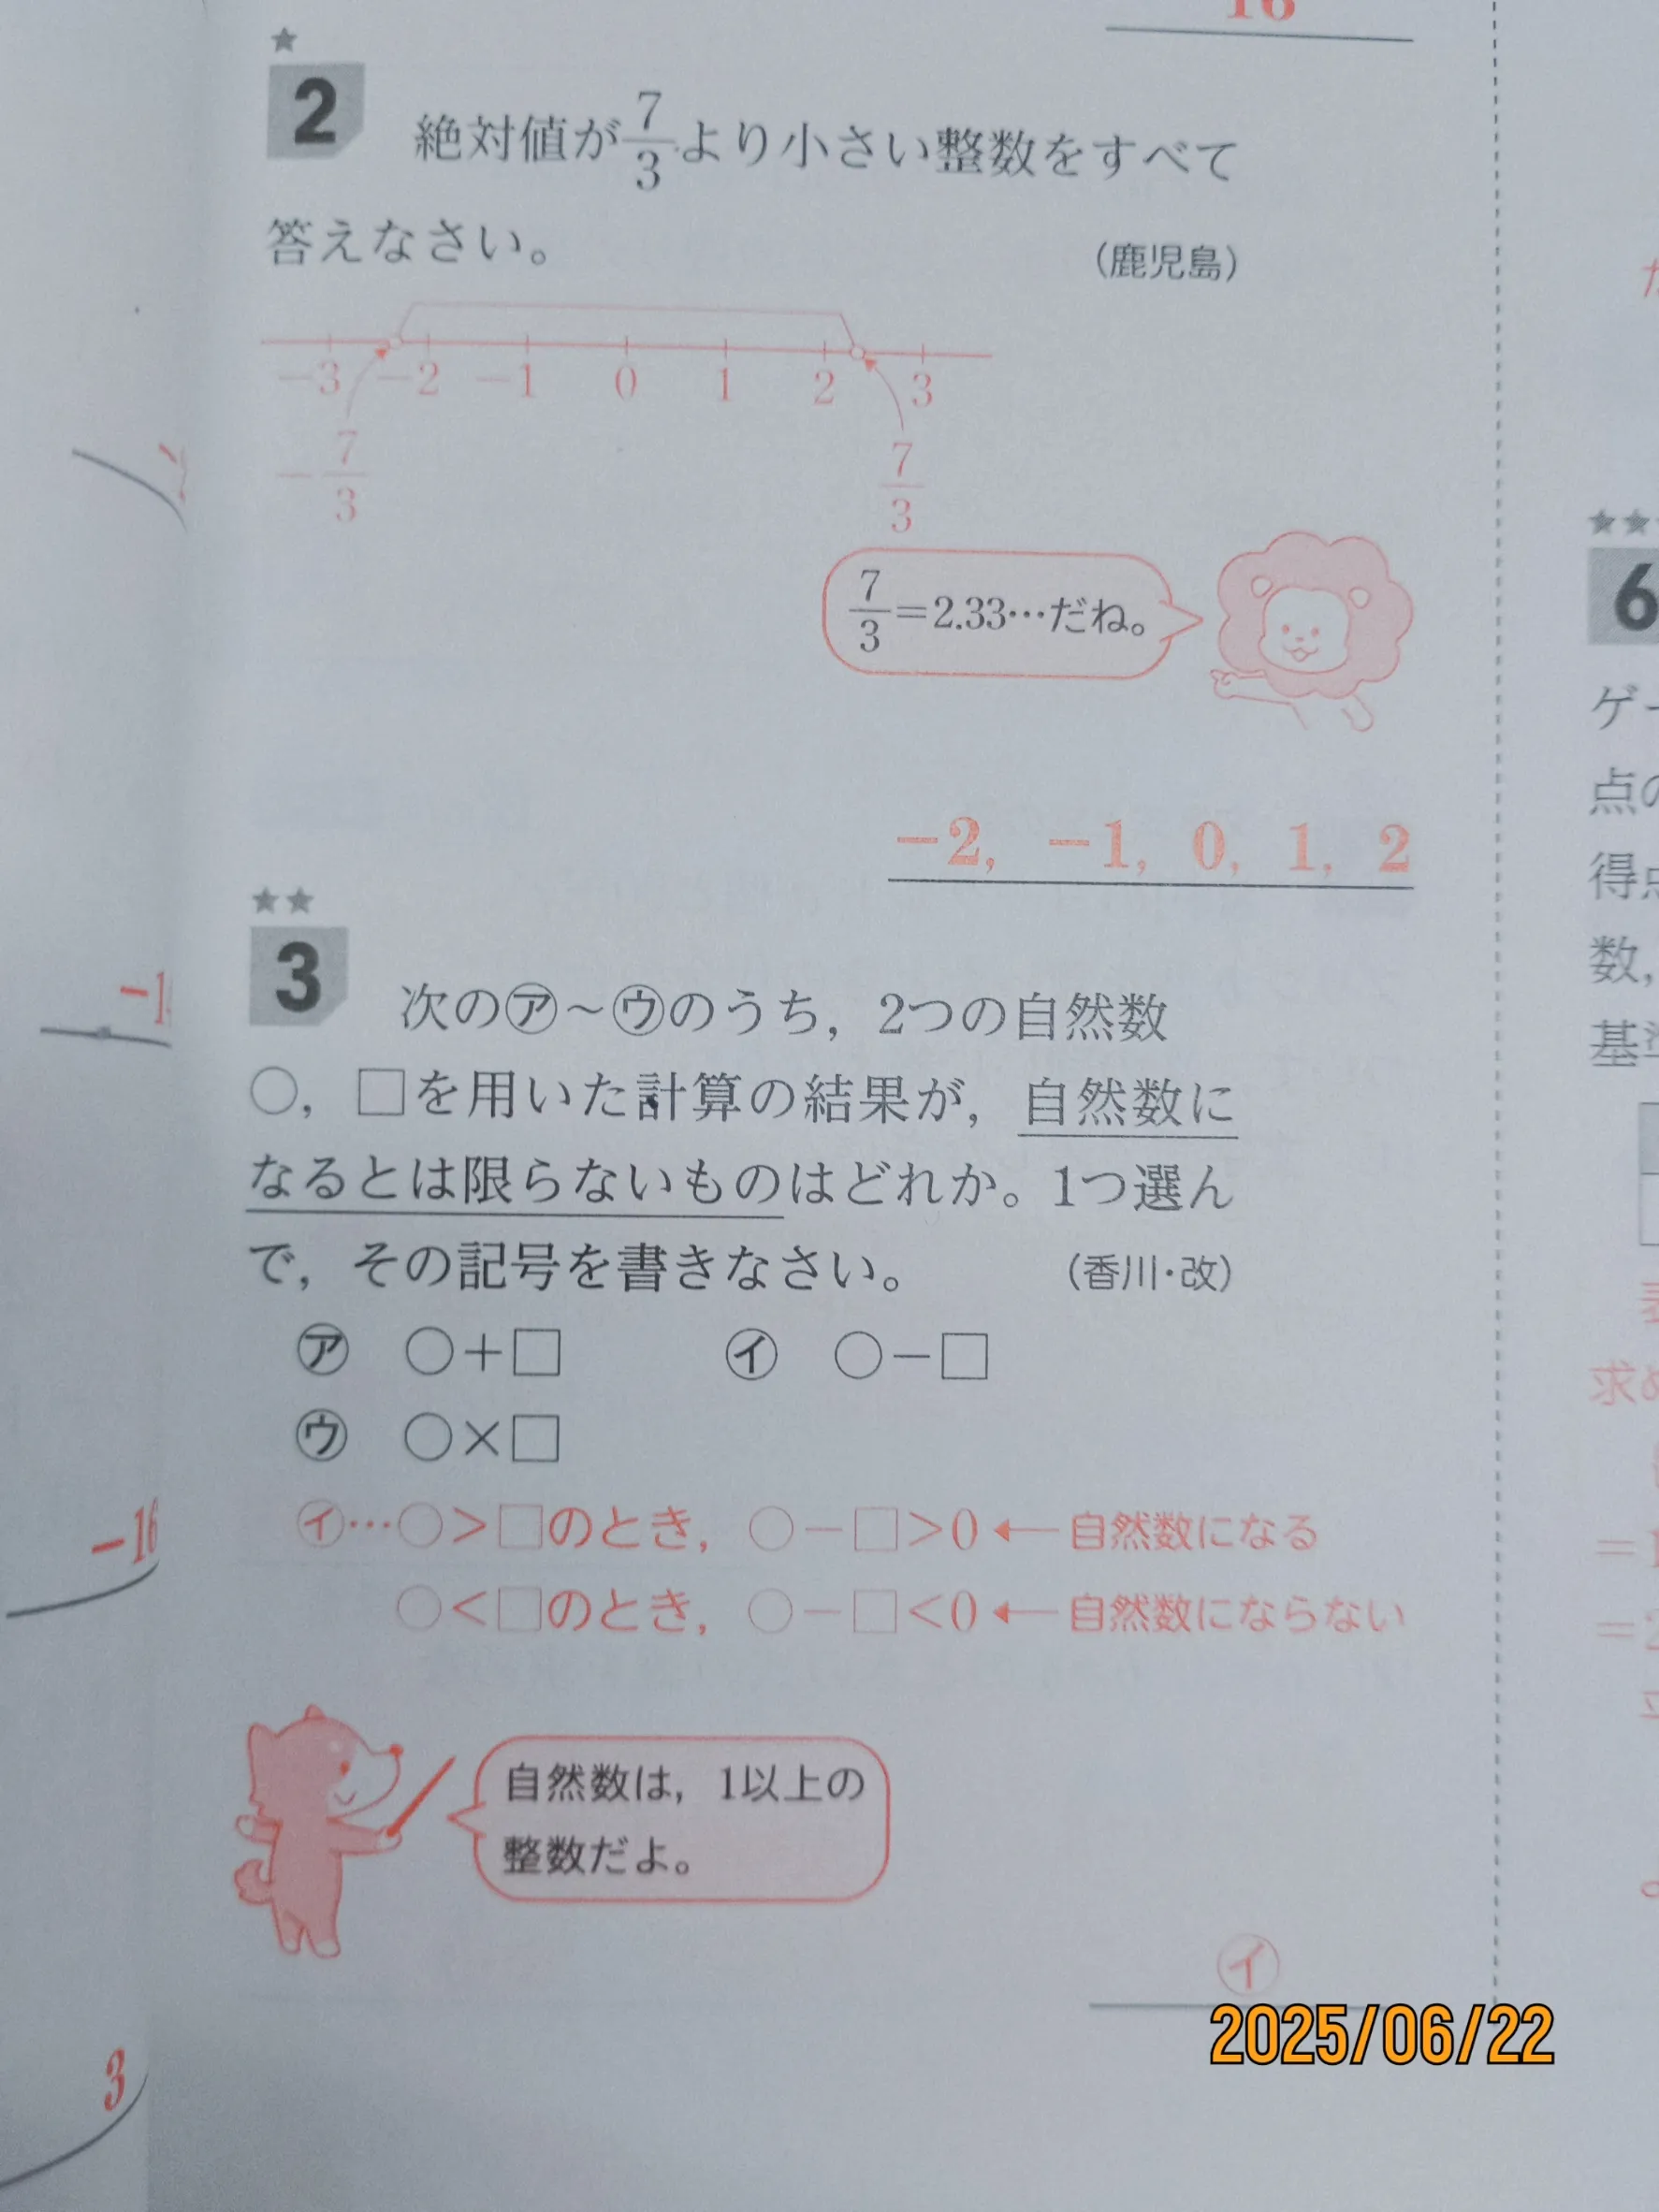 2 絶対値が7/3より小さい整数をすべて
答えなさい。 (鹿児島)
-3 -2 -1 0 1 2 3
-7/3 7/3
7/3=2.33…だね。
-2, -1, 0, 1, 2
★★
3 次の㋐~㋒のうち, 2つの自然数
○, □を用いた計算の結果が, 自然数に
なるとは限らないものはどれか。1つ選ん
で, その記号を書きなさい。 (香川・改)
㋐ ○+□ ㋑ ○-□
㋒ ○×□
㋑…○>□のとき, ○-□>0 ← 自然数になる
○<□のとき, ○-□<0 ← 自然数にならない
自然数は, 1以上の
整数だよ。
㋑
-16
3
6
ゲー
点の
得点
数,
基準
求め
2025/06/22